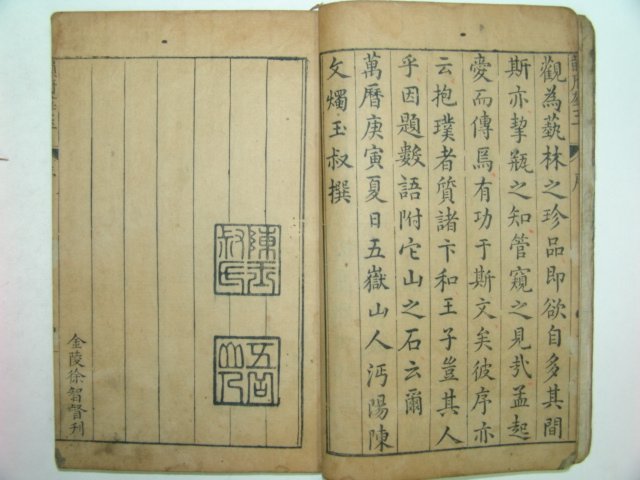 觀為藝林之珍品即欲自多其間
斯亦挈瓶之知管窺之見孟起
愛而傳焉有功于斯文矣彼序亦
云抱璞者質諸卞和王子豈其人
乎因題數語附它山之石云爾
萬曆庚寅夏日五嶽山人沔陽陳
文燭玉叔撰
陳玉叔氏
五岳山人
金陵徐智督刊